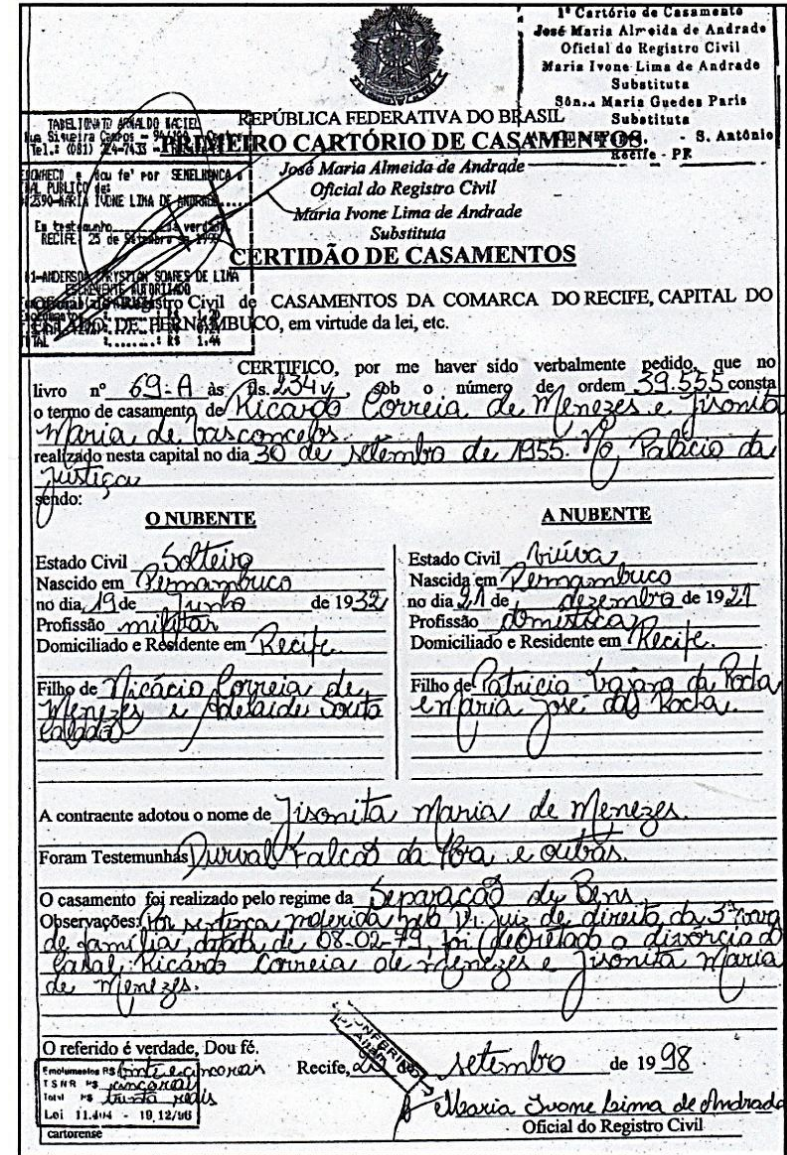 1º Cartório de Casamento
José Maria Almeida de Andrade
Oficial do Registro Civil
Maria Ivone Lima de Andrade
Substituta
Sônia Maria Guedes Paris
Substituta
- S. Antônio
Recife - PE
TABELIONATO ARNALDO MACIEL
Rua Siqueira Campos -
Tel.: (081) 224-7433 -
RECONHECO e dou fe' por SEMELHANCA a
PUBLICO de:
MARIA IVONE LIMA DE ANDRADE
Em testemunho da verdade
RECIFE 25 de Setembro de
SOARES DE LIMA
ESCREVENTE AUTORIZADO
TOTAL : R$ 1.44
REPÚBLICA FEDERATIVA DO BRASIL
PRIMEIRO CARTÓRIO DE CASAMENTOS
José Maria Almeida de Andrade
Oficial do Registro Civil
Maria Ivone Lima de Andrade
Substituta
CERTIDÃO DE CASAMENTOS
Registro Civil de CASAMENTOS DA COMARCA DO RECIFE, CAPITAL DO
ESTADO DE PERNAMBUCO, em virtude da lei, etc.
CERTIFICO, por me haver sido verbalmente pedido, que no
livro nº 69-A às fls. 234v sob o número de ordem 39.555 consta
o termo de casamento de Ricardo Correia de Menezes e Jisonita
Maria de Vasconcelos
realizado nesta capital no dia 30 de setembro de 1955. No Palácio da
justiça
sendo:
O NUBENTE
Estado Civil Solteiro
Nascido em Pernambuco
no dia 19 de Junho de 1932
Profissão militar
Domiciliado e Residente em Recife
Filho de Nicácio Correia de
Menezes e Adelaide Souto
A NUBENTE
Estado Civil viúva
Nascida em Pernambuco
no dia 21 de dezembro de 1921
Profissão doméstica
Domiciliado e Residente em Recife.
Filho de Patricio da Rocha
e Maria José da Rocha.
A contraente adotou o nome de Jisonita Maria de Menezes.
Foram Testemunhas Durval Falcão da Hora e outros.
O casamento foi realizado pelo regime da Separação de Bens
Observações: Por sentença proferida pelo Dr. juiz de direito da 3ª vara
de família, datada de 08-02-79, foi decretado o divórcio do
casal: Ricardo Correia de Menezes e Jisonita Maria
de Menezes.
O referido é verdade, Dou fé.
CONFERIDO
Recife, 25 de setembro de 1998
Emolumentos R$ vinte e cinco reais
TSNR R$ cinco reais
Total R$ trinta reais
Lei 11.404 - 19.12/96
cartorense
Maria Ivone Lima de Andrade
Oficial do Registro Civil